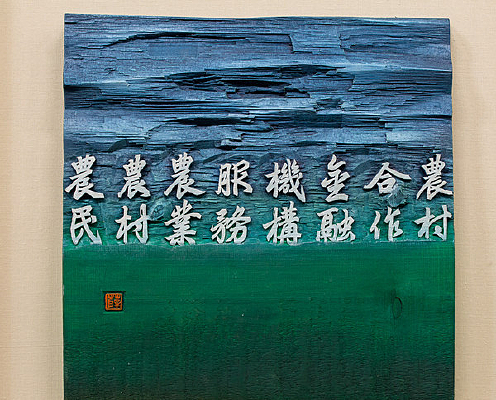 農村
合作
金融
機構
服務
農業
農村
農民